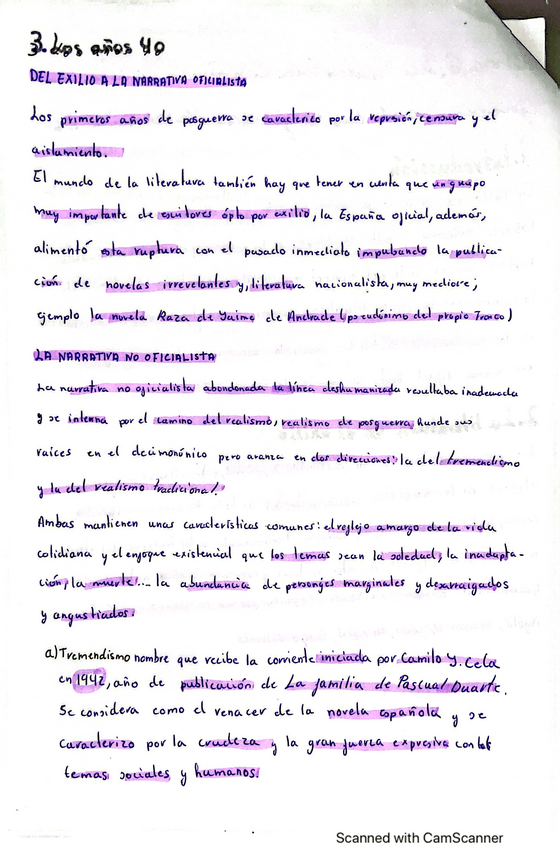 3. Los años 40
DEL EXILIO A LA NARRATIVA OFICIALISTA
Los primeros años de posguerra se caracterizo por la represión, censura y el
aislamiento.
El mundo de la literatura también hay que tener en cuenta que un grupo
muy importante de escritores ópto por exilio, la España oficial, además,
alimentó esta ruptura con el pasado inmediato impulsando la publica-
ción de novelas irrevelantes y, literatura nacionalista, muy mediocre;
ejemplo la novela Raza de Jaime de Andrade (pseudónimo del propio Franco)
LA NARRATIVA NO OFICIALISTA
La narrativa no oficialista abondonada la línea deshumanizada resultaba inadecuada
y se interna por el camino del realismo, realismo de posguerra, hunde sus
raíces en el decimonónico pero avanza en dos direcciones: la del tremendismo
y la del realismo tradicional.
Ambas mantienen unas características comunes: el reflejo amargo de la vida
cotidiana y el enfoque existencial que los temas sean la soledad, la inadapta-
ción, la muerte... la abundancia de personajes marginales y desarraigados
y angustiados.
a) Tremendismo nombre que recibe la corriente iniciada por Camilo J. Cela
en 1942, año de publicación de La familia de Pascual Duarte.
Se considera como el renacer de la novela española y se
caracterizo por la crudeza y la gran fuerza expresiva con los
temas sociales y humanos.
Scanned with CamScanner